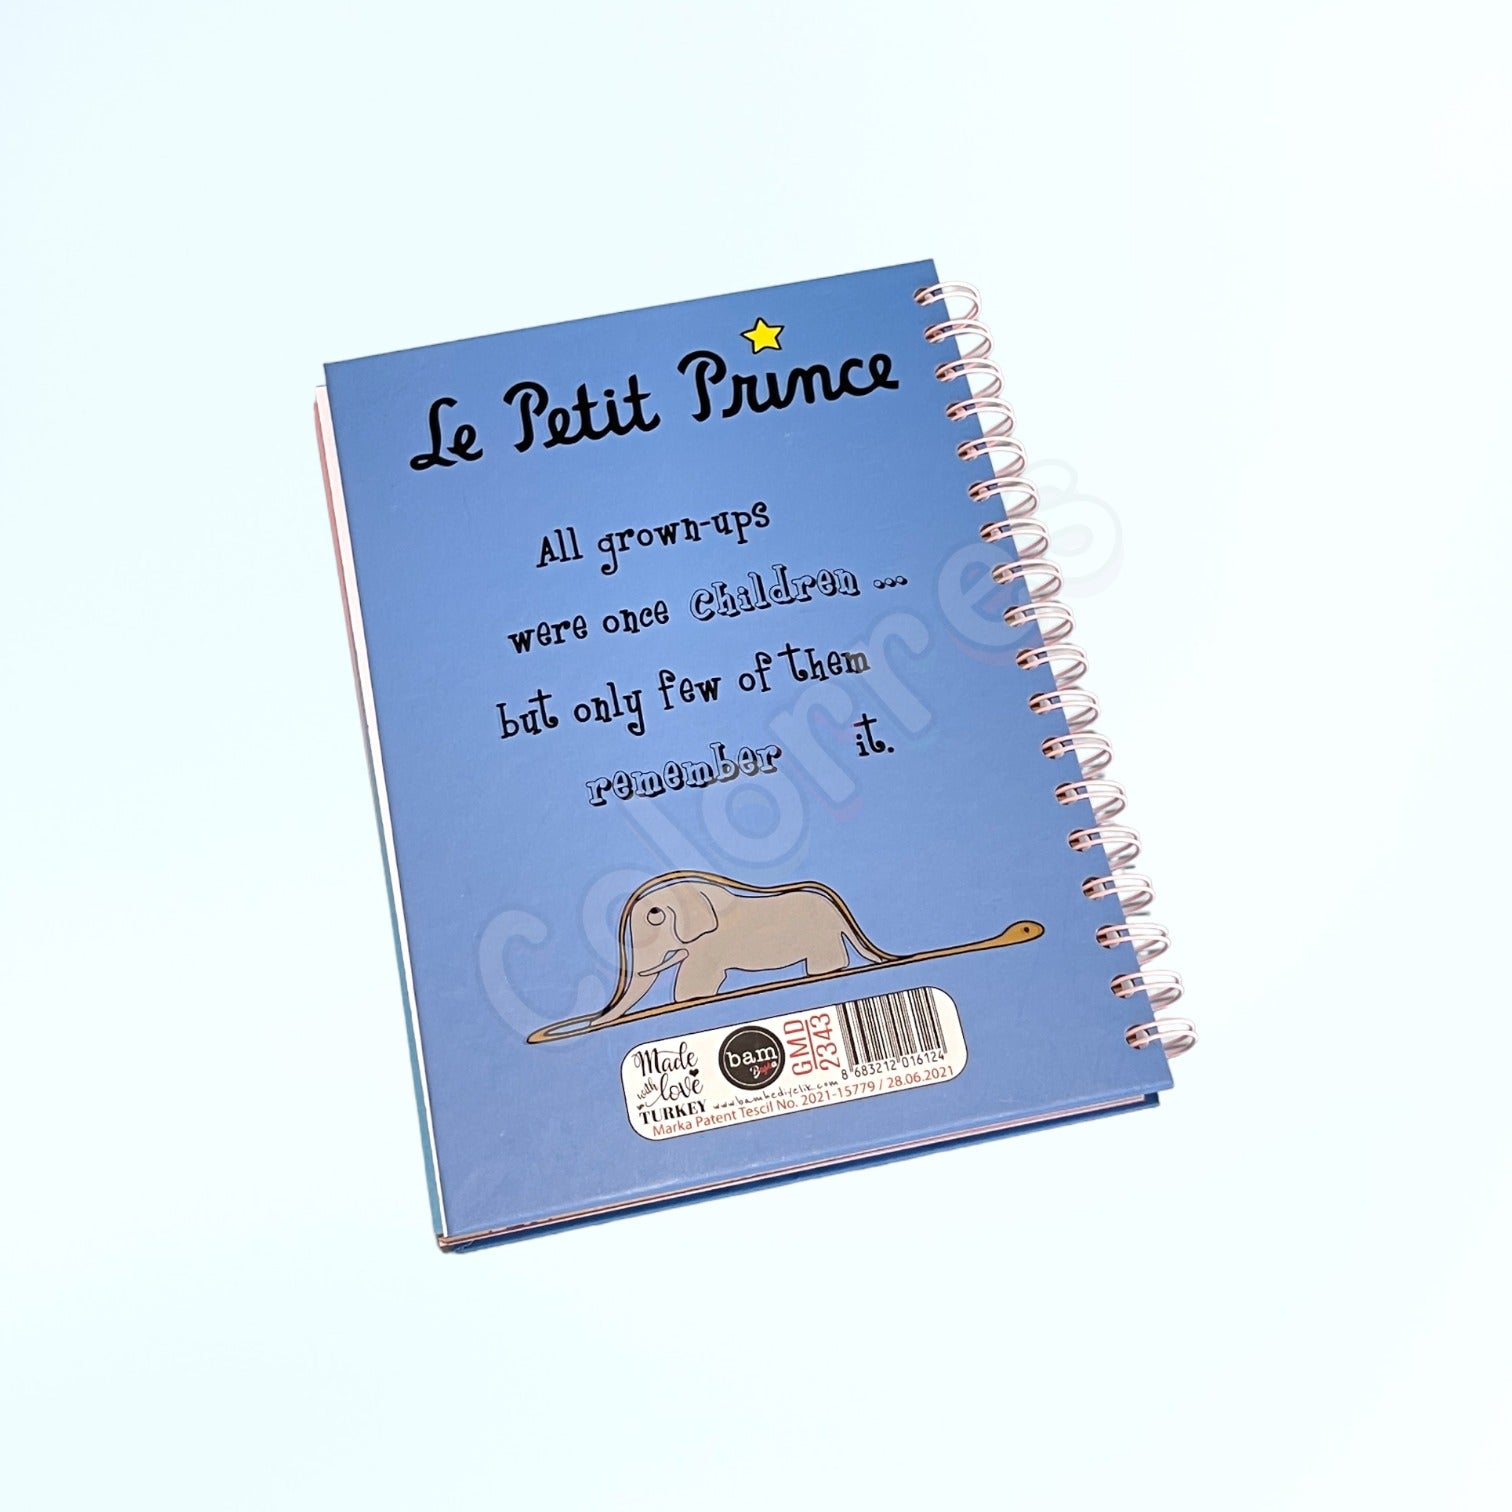 Le Petit Prince
All grown-ups
were once children ...
but only few of them
remember it.
colorres
Made
with
love
TURKEY
bam
GMD
2343
8 683212 016124
www.bamhediyelik.com
Marka Patent Tescil No. 2021-15779 / 28.06.2021